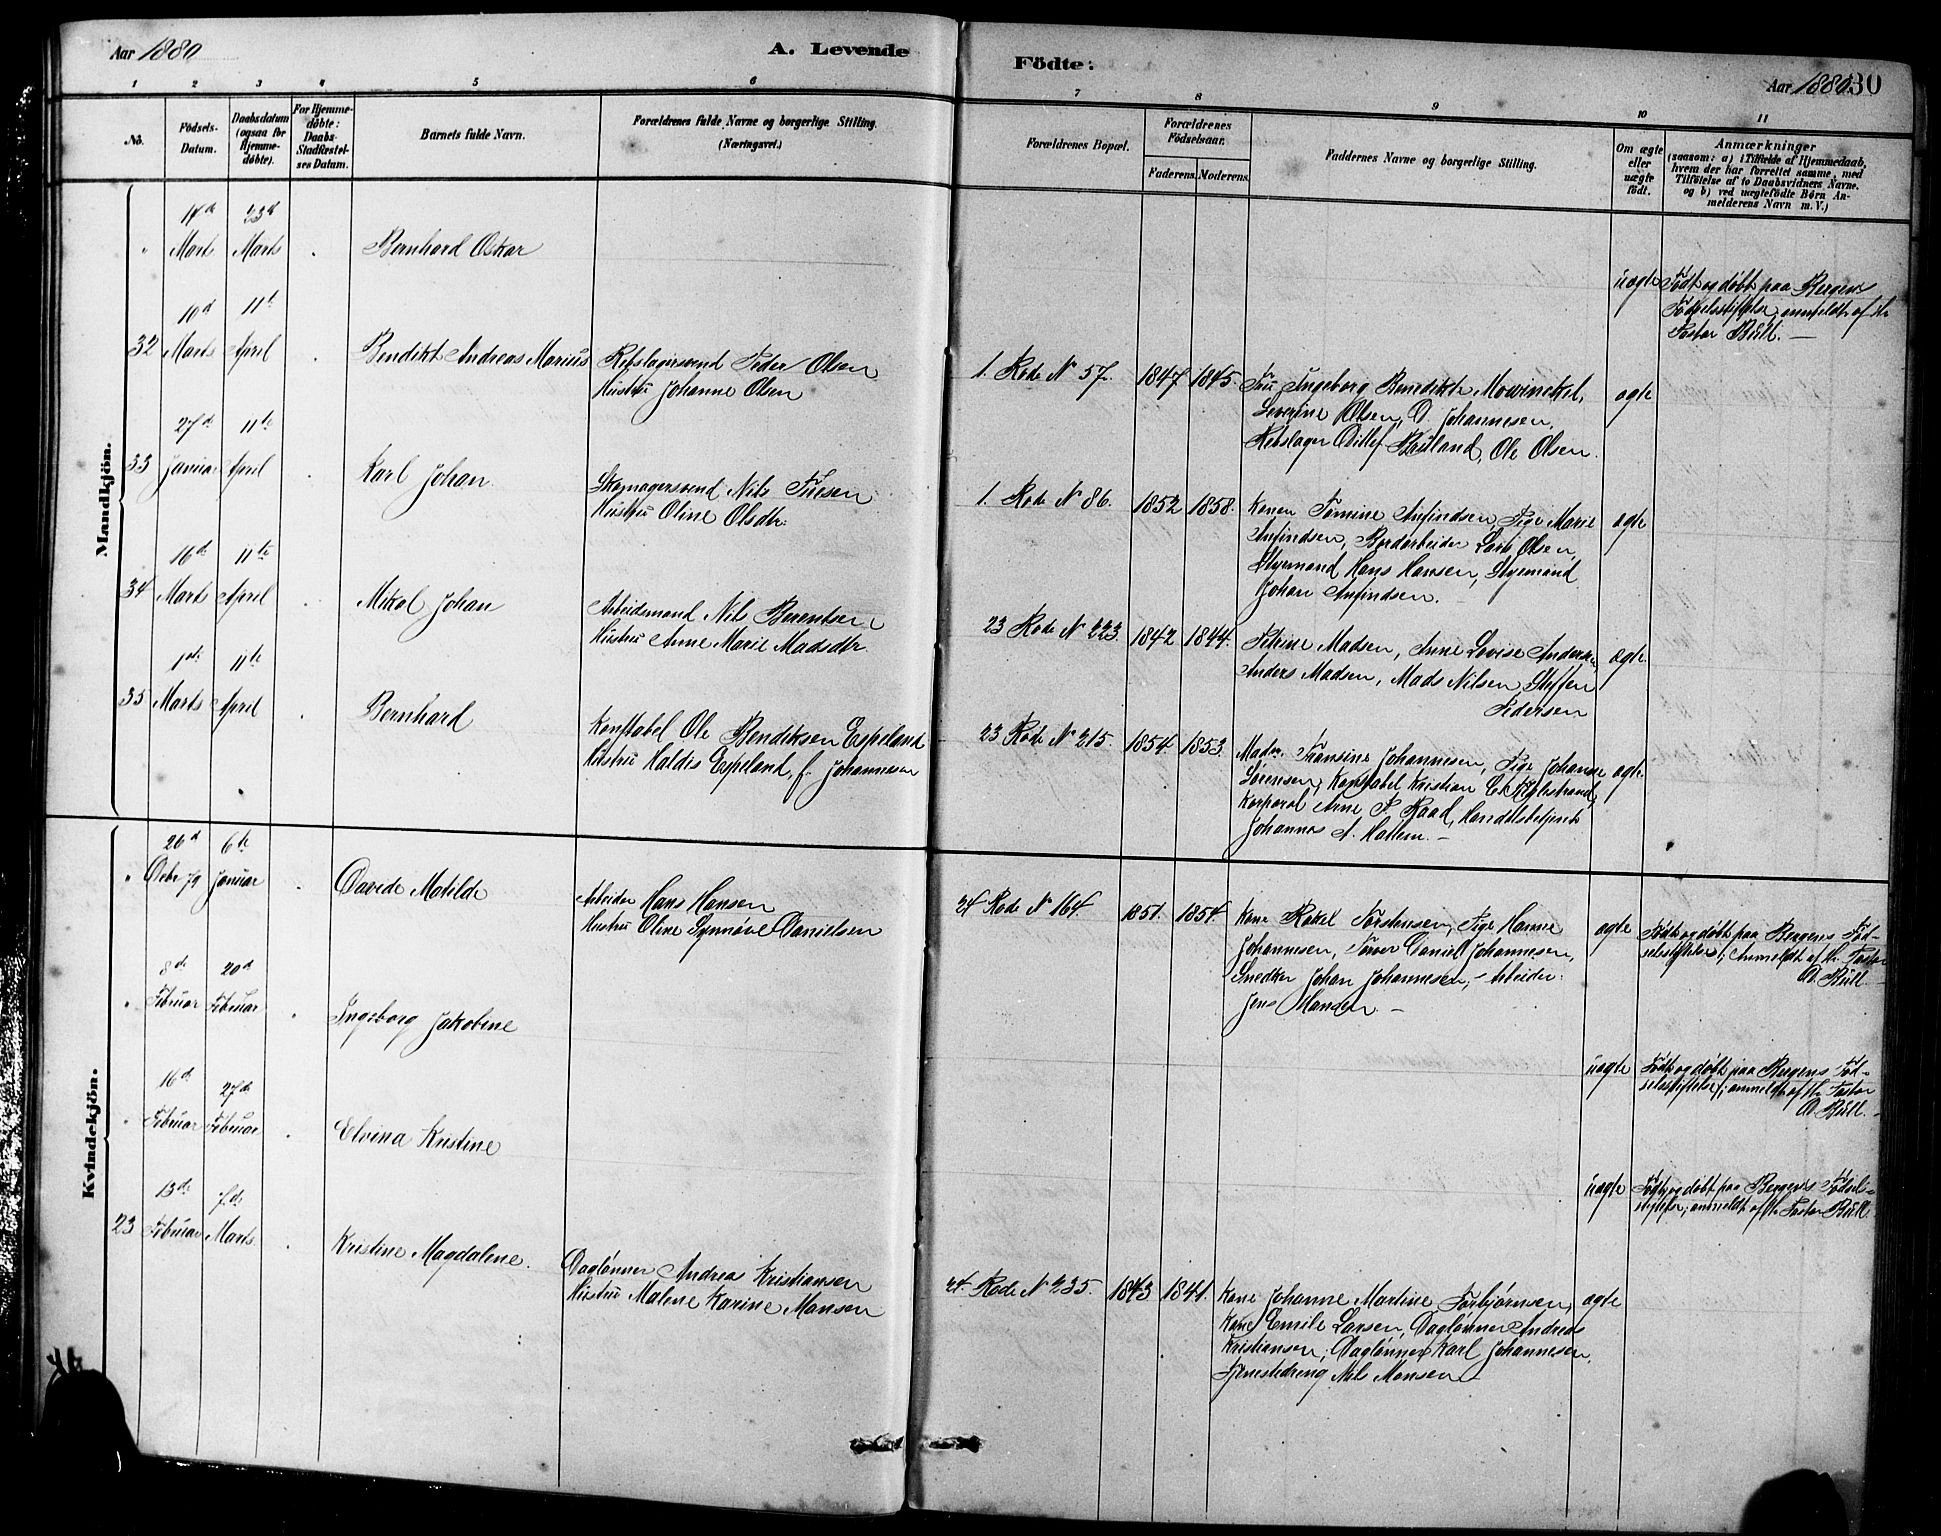 Aar 1880
A. Levende
Födte:
Aar 1880.
30
1 2 3 4 5 6 7 8 9 10 11
No.
Födsels-
Datum.
Daabsdatum
(ogsaa for
Hjemme-
döbte).
For Hjemme-
döbte:
Daabs-
Stadfæstel-
ses Datum.
Barnets fulde Navn.
Forældrenes fulde Navne og borgerlige Stilling.
(Næringsvei.)
Forældrenes Bopæl.
Forældrenes
Födselsaar.
Faderens. Moderens.
Faddernes Navne og borgerlige Stilling.
Om ægte
eller
uægte
födt.
Anmærkninger
(saasom: a) i Tilfælde af Hjemmedaab,
hvem der har forrettet samme, med
Tilföielse af to Daabsvidners Navne.
og b) ved uægtefödte Börn An-
melderens Navn m. V.)
Mandkjön.
23d
" Marts Marts Bernhard Oskar
uægte
Födt og döbt paa Bergens
Födselsstiftelse; anmeldt af Hr
Pastor Büll.
10d 11te
32 Marts April Bendikt Andreas Marius
Rebslagersvend Peder Olsen
Hustru Johanne Olsen
1. Rode No 57. 1847 1845.
Fru Ingeborg Benedikte Mowinckel,
Severine Olsen, O. Johannesen,
Rebslager Ditlef Risland, Ole Olsen.
ægte
27d 11te
33 Januar April Karl Johan
Skomagersvend Nils
Hustru Oline Olsdtr.
1. Rode No 86. 1852 1858.
Konen Tomine Anfindsen, Pige Marie
Anfindsen, Bordarbeider Lars Olsen,
Styrmand Hans Hansen, Styrmand
Johan Anfindsen.
ægte
16de 11te
34 Marts April Mikal Johan
Arbeidsmand Nils Berentsen
Hustru Anne Marie Madsdtr.
23 Rode No 223. 1842 1844.
Petrine Madsen, Anne Lovise Andersen,
Anders Madsen, Mads Nilsen, Steffen
Pedersen
ægte
1ste 11te
35 Marts April Bernhard
Konstabel Ole Bendiksen Espeland
Hustru Haldis Espeland, f. Johannesen
23 Rode No 215. 1854. 1853.
Madm. Fransine Johannesen, Pige Johanne
Sørensen, Konstabel Kristian
Korporal Arne P. Raad, Handelsbetjent
Johannes A. Hallem.
ægte
Kvindekjön.
26d 6te
" Decbr 79 Januar Davide Matilde
Arbeider Hans Hansen
Hustru Oline Synnøve Danielsen
24 Rode No 164. 1851. 1854.
Kone Rakel Torstensen, Pige Hanne
Johannesen, Daniel Johannesen,
Snedker Johan Johannesen, Arbeider
Jens Hansen.
ægte
Födt og döbt paa Bergens Föd-
selsstiftelse; Anmeldt af Hr. Pastor
O. Büll.
8de 20d
" Februar Februar Ingeborg Jakobine
uægte
Födt og döbt paa Bergens Föd-
selsstiftelse; anmeldt af Hr Pastor
O. Büll.
16d 27de
" Februar Februar Elvina Kristine
uægte
Födt og döbt paa Bergens Födsels-
stiftelse; anmeldt af Hr Pastor Büll.
13de 7de
23 Februar Marts Kristine Magdalene.
Daglønner Andreas Kristiansen
Hustru Malene Karine Monsen
24. Rode No 235. 1843 1841.
Kone Johanne Martine Torbjørnsen,
Kone Emile Larsen, Daglønner Andreas
Kristiansen, Daglønner Karl Johannesen,
Tjenestedreng Nils Monsen
ægte